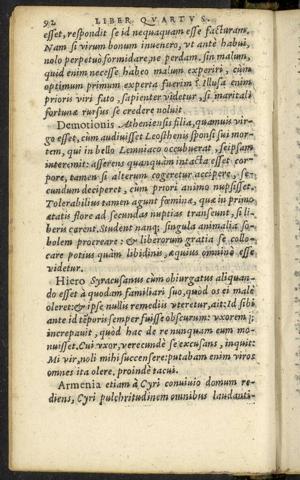 92 LIBER QVARTVS.
esset, respondit se id nequaquam esse facturam.
Nam si virum bonum inuenero, vt ante habui,
nolo perpetuò formidare, ne perdam. sin malum,
quid enim necesse habeo malum experiri, cùm
optimum primum experta fuerim? Illusa enim
prioris viri fato, sapienter videtur, si maritali
fortunæ rursus se credere noluit
Demotionis Atheniensis filia, quamuis vir-
go esset, cùm audiuisset Leosthenis sponsi sui mor-
tem, qui in bello Lemniaco occubuerat, seipsam
interemit: asserens quanquàm intacta esset cor-
pore, tamen si alterum cogeretur accipere, se-
cundum deciperet, cùm priori animo nupsisset.
Tolerabilius tamen agunt fœminæ, quæ in primo
ætatis flore ad secundas nuptias transeunt, si li-
beris carent. Student nanq; singula animalia so-
bolem procreare: & liberorum gratia se collo-
care potius quàm libidinis, æquius omninò esse
videtur.
Hiero Syracusanus cùm obiurgatus aliquan-
do esset à quodam familiari suo, quòd os ei malè
oleret: & ipse nullis remediis vteretur, ait: Id sibi
ante id tẽporis semper fuisse obscurum: vxorem q;
increpauit, quòd hac de re nunquam eum mo-
nuisset. Cui vxor, verecundè se excusans, inquit:
Mi vir, noli mihi succensere: putabam enim viros
omnes ita olere. proindè tacui.
Armenia etiam à Cyri conuiuio domum re-
diens, Cyri pulchritudinem omnibus laudanti-